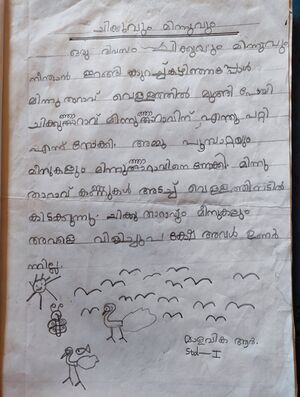 ചിക്കുവും മിന്നുവും
ഒരു ദിവസം ചിക്കുവും മിന്നുവും
നീന്താൻ ഇറങ്ങി കുറച്ച്കഴിഞ്ഞപ്പോൾ
മിന്നു താറാവ് വെള്ളത്തിൽ മുങ്ങി പോയി
ചിക്കുത്താറാവ് മിന്നുത്താറാവിന് എന്തു പറ്റി
എന്ന് നോക്കി. അമ്മു പൂമ്പാറ്റയും
മീനുകളും മിന്നുത്താറാവിനെ നോക്കി. മിന്നു
താറാവ് കണ്ണുകൾ അടച്ച് വെള്ളത്തിനടിൽ
കിടക്കുന്നു. ചിക്കു താറാവും മീനുകളും
അവളെ വിളിച്ചു പക്ഷേ അവൾ ഉണർ
ന്നില്ല.
മാളവിക ആർ.
Std - I